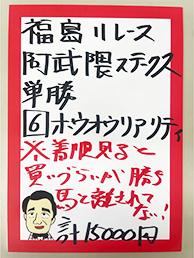 福島11レース
阿武隈ステークス
単勝
6 ホウオウリアリティ
※着順見ると
買いづらいが勝ち
馬と離されて
ない!
計15000円